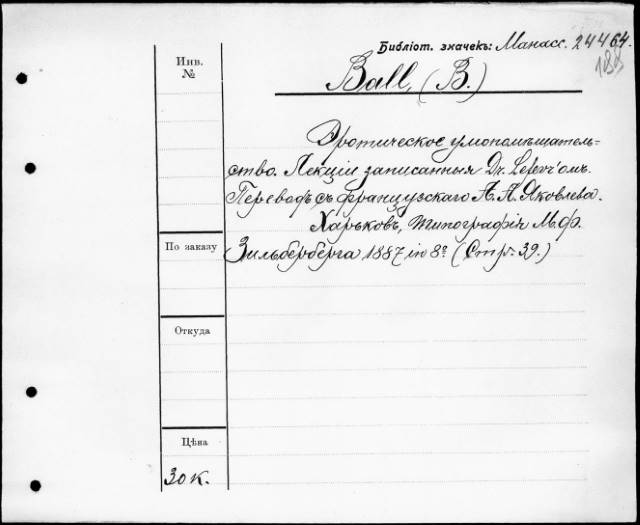 Библіот. значекъ: Манасс. 24464.
188
Инв.
№
Ball, (B.)
Эротическое умопомѣшатель-
ство. Лекціи записанныя Dr. Lefevr'омъ.
Переводъ съ французскаго А. А. Яковлева.
Харьковъ, Типографія М. Ф.
Зильберберга 1887 in 8º (Стр. 39.)
По заказу
Откуда
Цѣна
30 к.